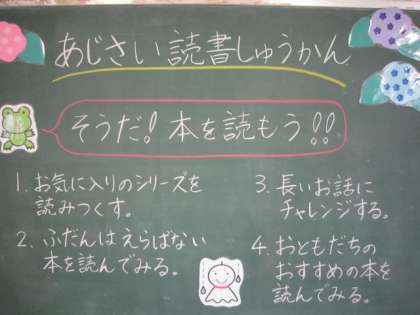 あじさい読書しゅうかん
そうだ!本を読もう!!
1.お気に入りのシリーズを
読みつくす。
2.ふだんはえらばない
本を読んでみる。
3.長いお話に
チャレンジする。
4.おともだちの
おすすめの本を
読んでみる。